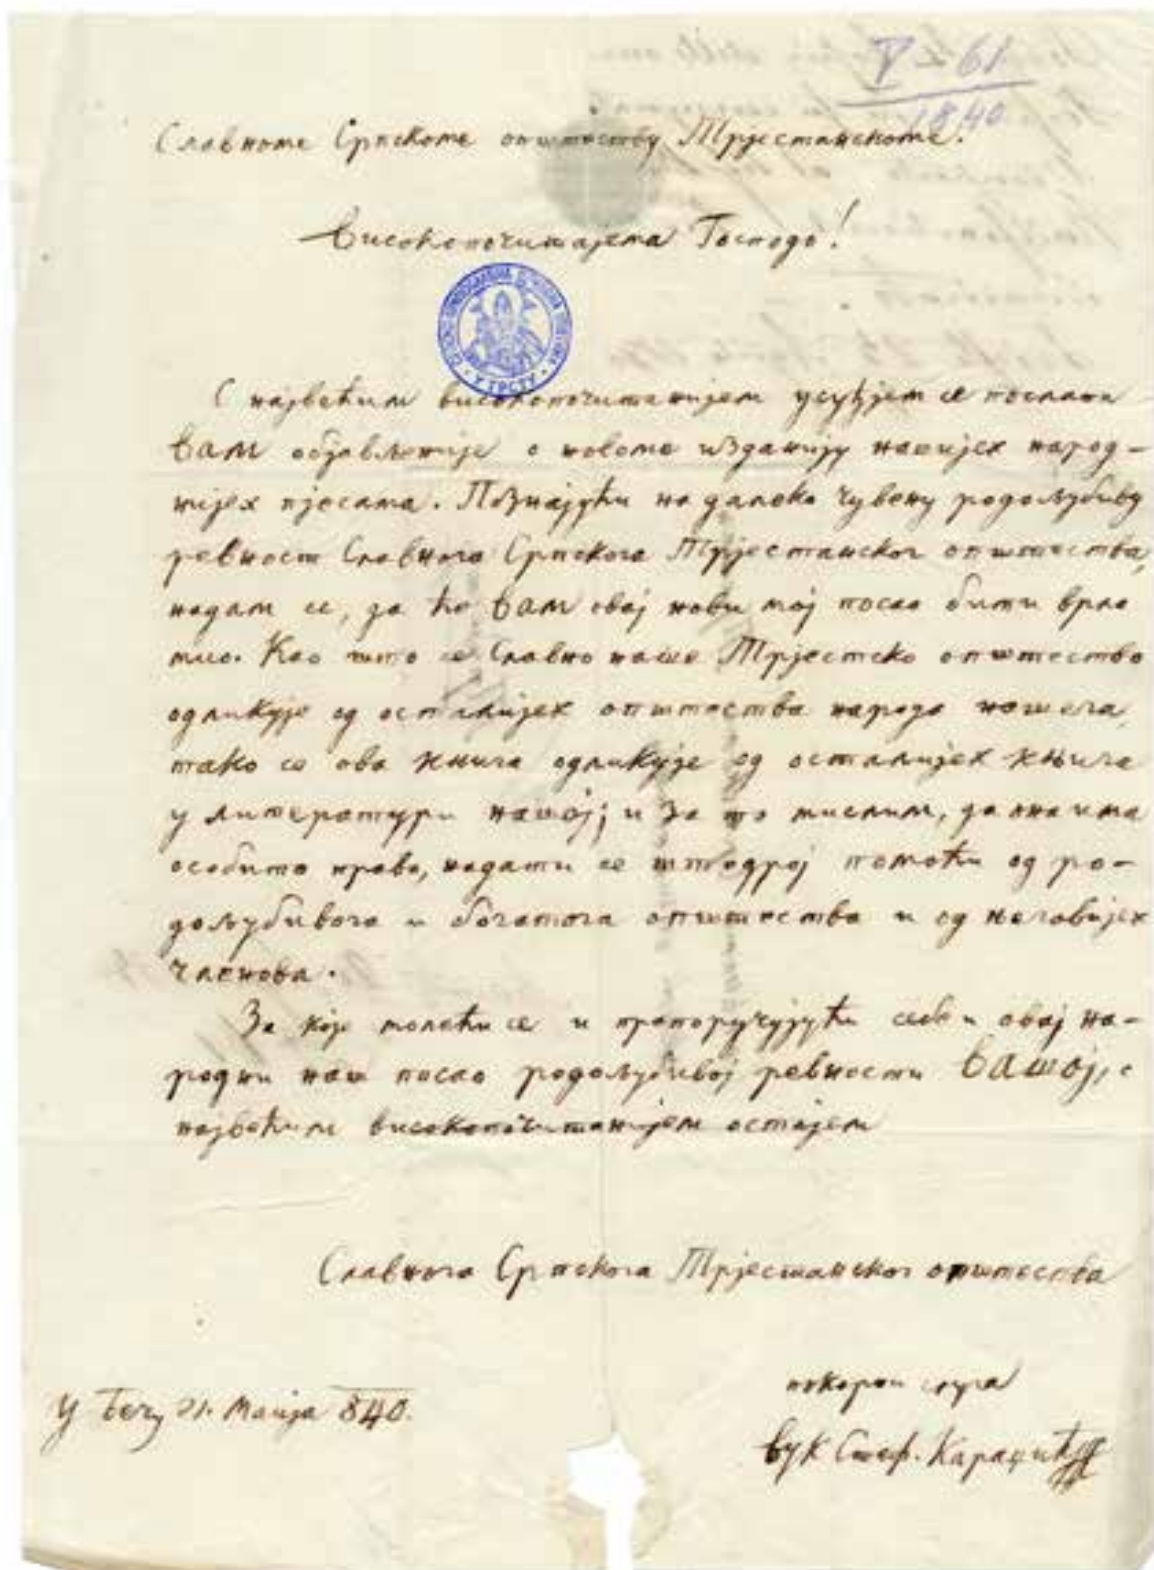 V–61
1840
Славноме Српскоме општеству Трјестанскоме.
Високопочитајема Господо!
У ТРСТУ
С највећим високопочитанијем усуђујем се послати
Вам објављеније о новоме изданију нашијех народ–
нијех пјесама. Познајући на далеко чувену родољубиву
ревност Славнога Српскога Трјестанског општества,
надам се, да ће Вам овај нови мој посао бити врло
мио. Као што се Славно наше Трјестско општество
одликује од осталијех општества народа нашега,
тако се ова књига одликује од осталијех књига
у литератури нашој; и за то мислим, да она има
особито право, надати се штедрој помоћи од ро–
дољубивога и богатога општества и од његовијех
членова.
За које молећи се и препоручујући себе и овај на–
родни наш посао родољубивој ревности Вашој, с
највећим високопочитанијем остајем
Славнога Српскога Трјестанског општества
покорни слуга
У Бечу 21. Маија 840.
Вук Стеф. Караџић